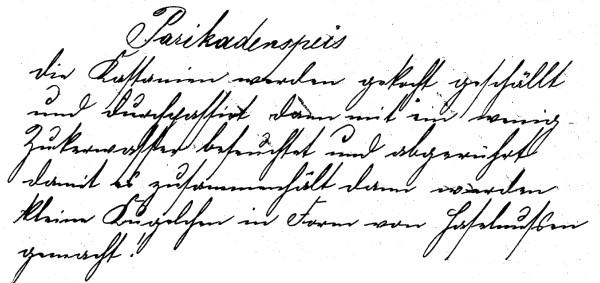 Parikadenspeis
die Kastanien werden gekocht geschällt
und durchpassirt dann mit ein wenig
Zukerwasser befeuchtet und abgerührt
damit es zusammenhält dann werden
kleine Kügelchen in Form von Haselnussen
gemacht!